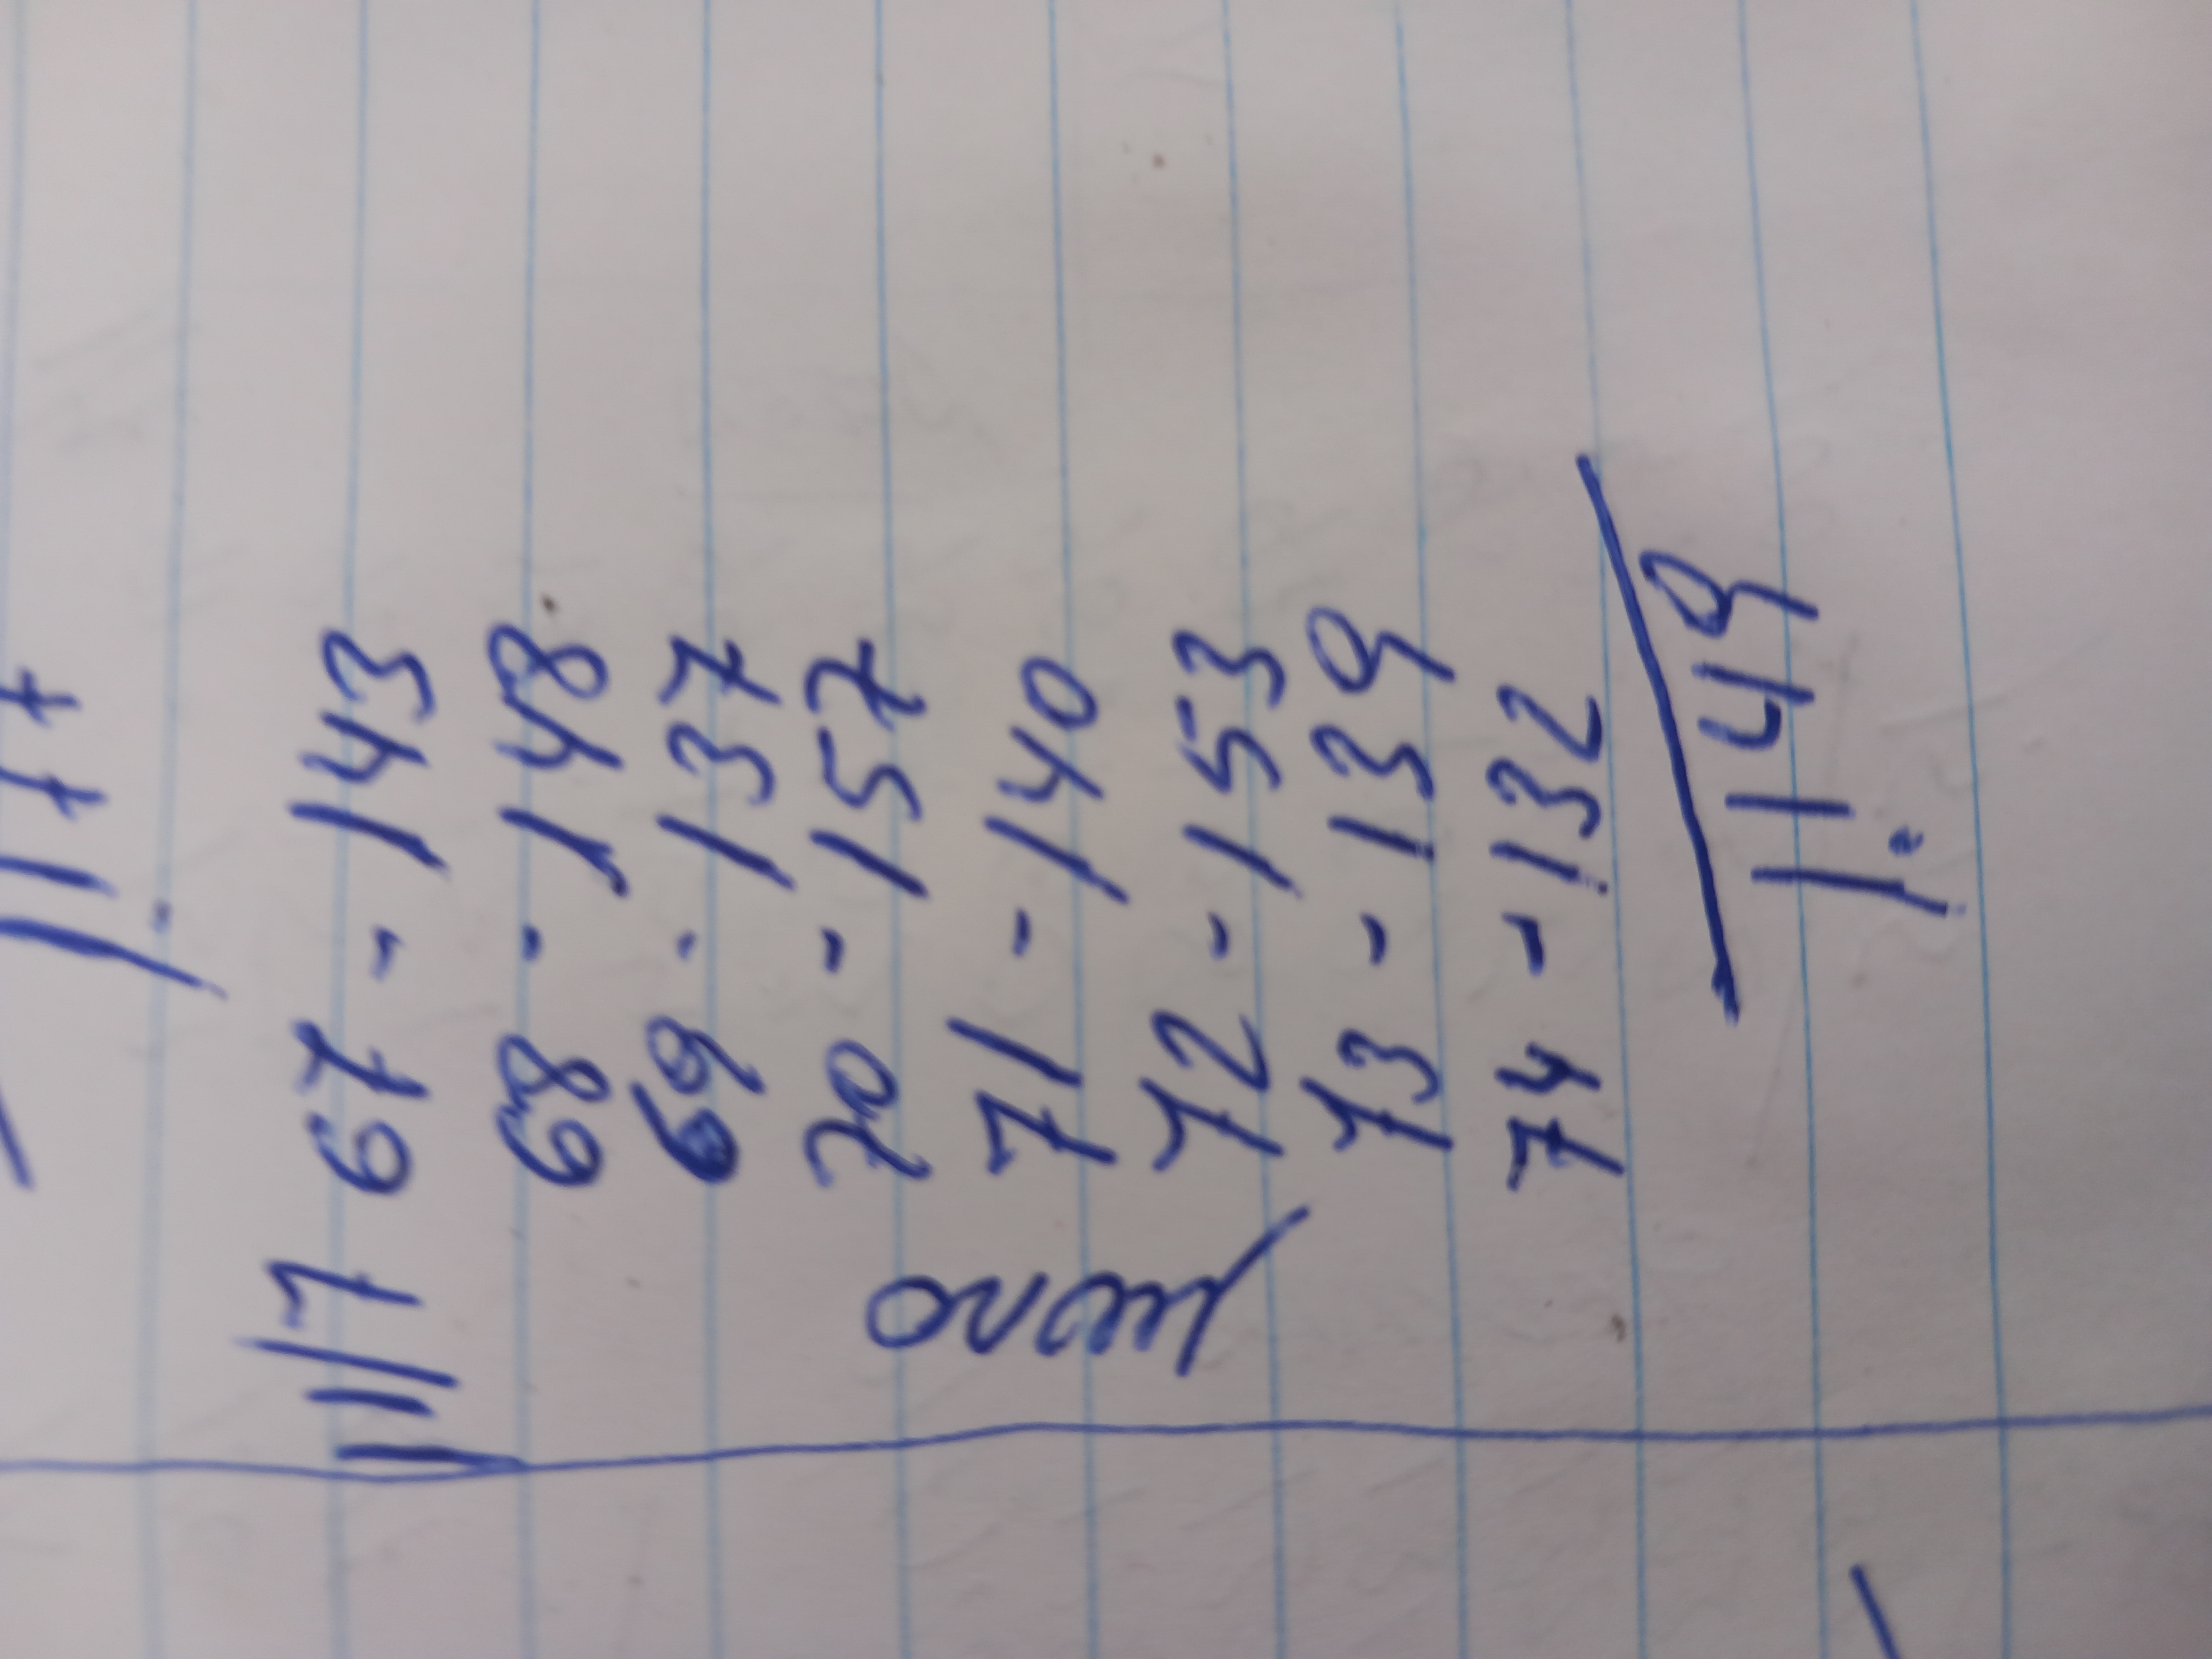 1.177
11/7 67 - 143
68 - 148
69 - 137
70 - 157
71 - 140
72 - 153
73 - 139
74 - 132
1.149